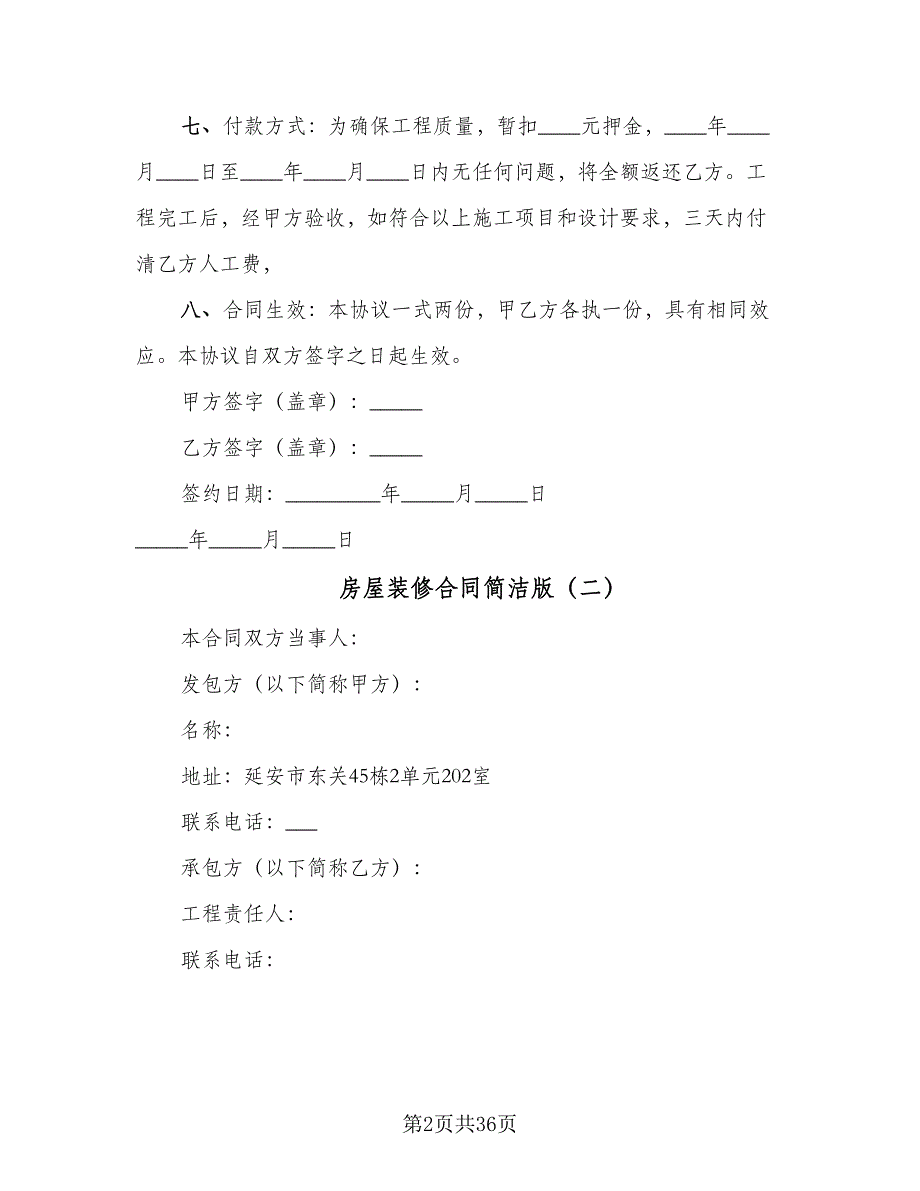 七、付款方式：为确保工程质量，暂扣____元押金，____年____
月____日至____年____月____日内无任何问题，将全额返还乙方。工
程完工后，经甲方验收，如符合以上施工项目和设计要求，三天内付
清乙方人工费，
八、合同生效：本协议一式两份，甲乙方各执一份，具有相同效
应。本协议自双方签字之日起生效。
甲方签字（盖章）：_____
乙方签字（盖章）：_____
签约日期：_________年_____月_____日
_____年_____月_____日
房屋装修合同简洁版（二）
本合同双方当事人：
发包方（以下简称甲方）：
名称：
地址：延安市东关45栋2单元202室
联系电话：___
承包方（以下简称乙方）：
工程责任人：
联系电话：
第2页共36页